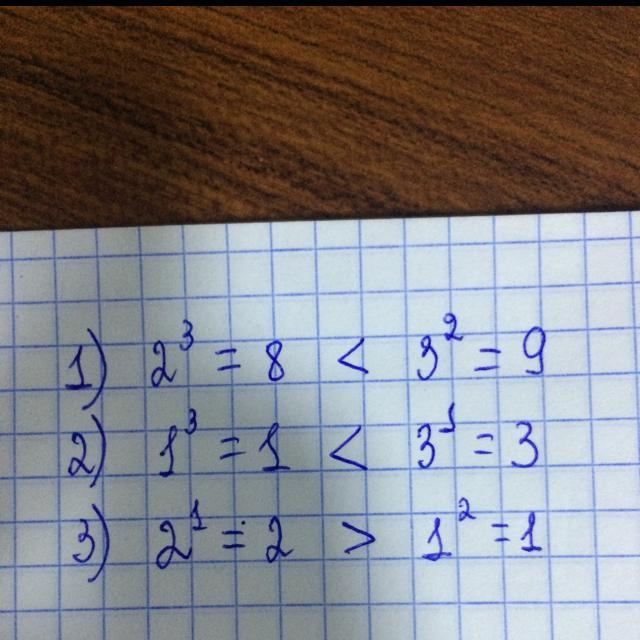 1) 2³ = 8 < 3² = 9
2) 1³ = 1 < 3¹ = 3
3) 2¹ = 2 > 1² = 1